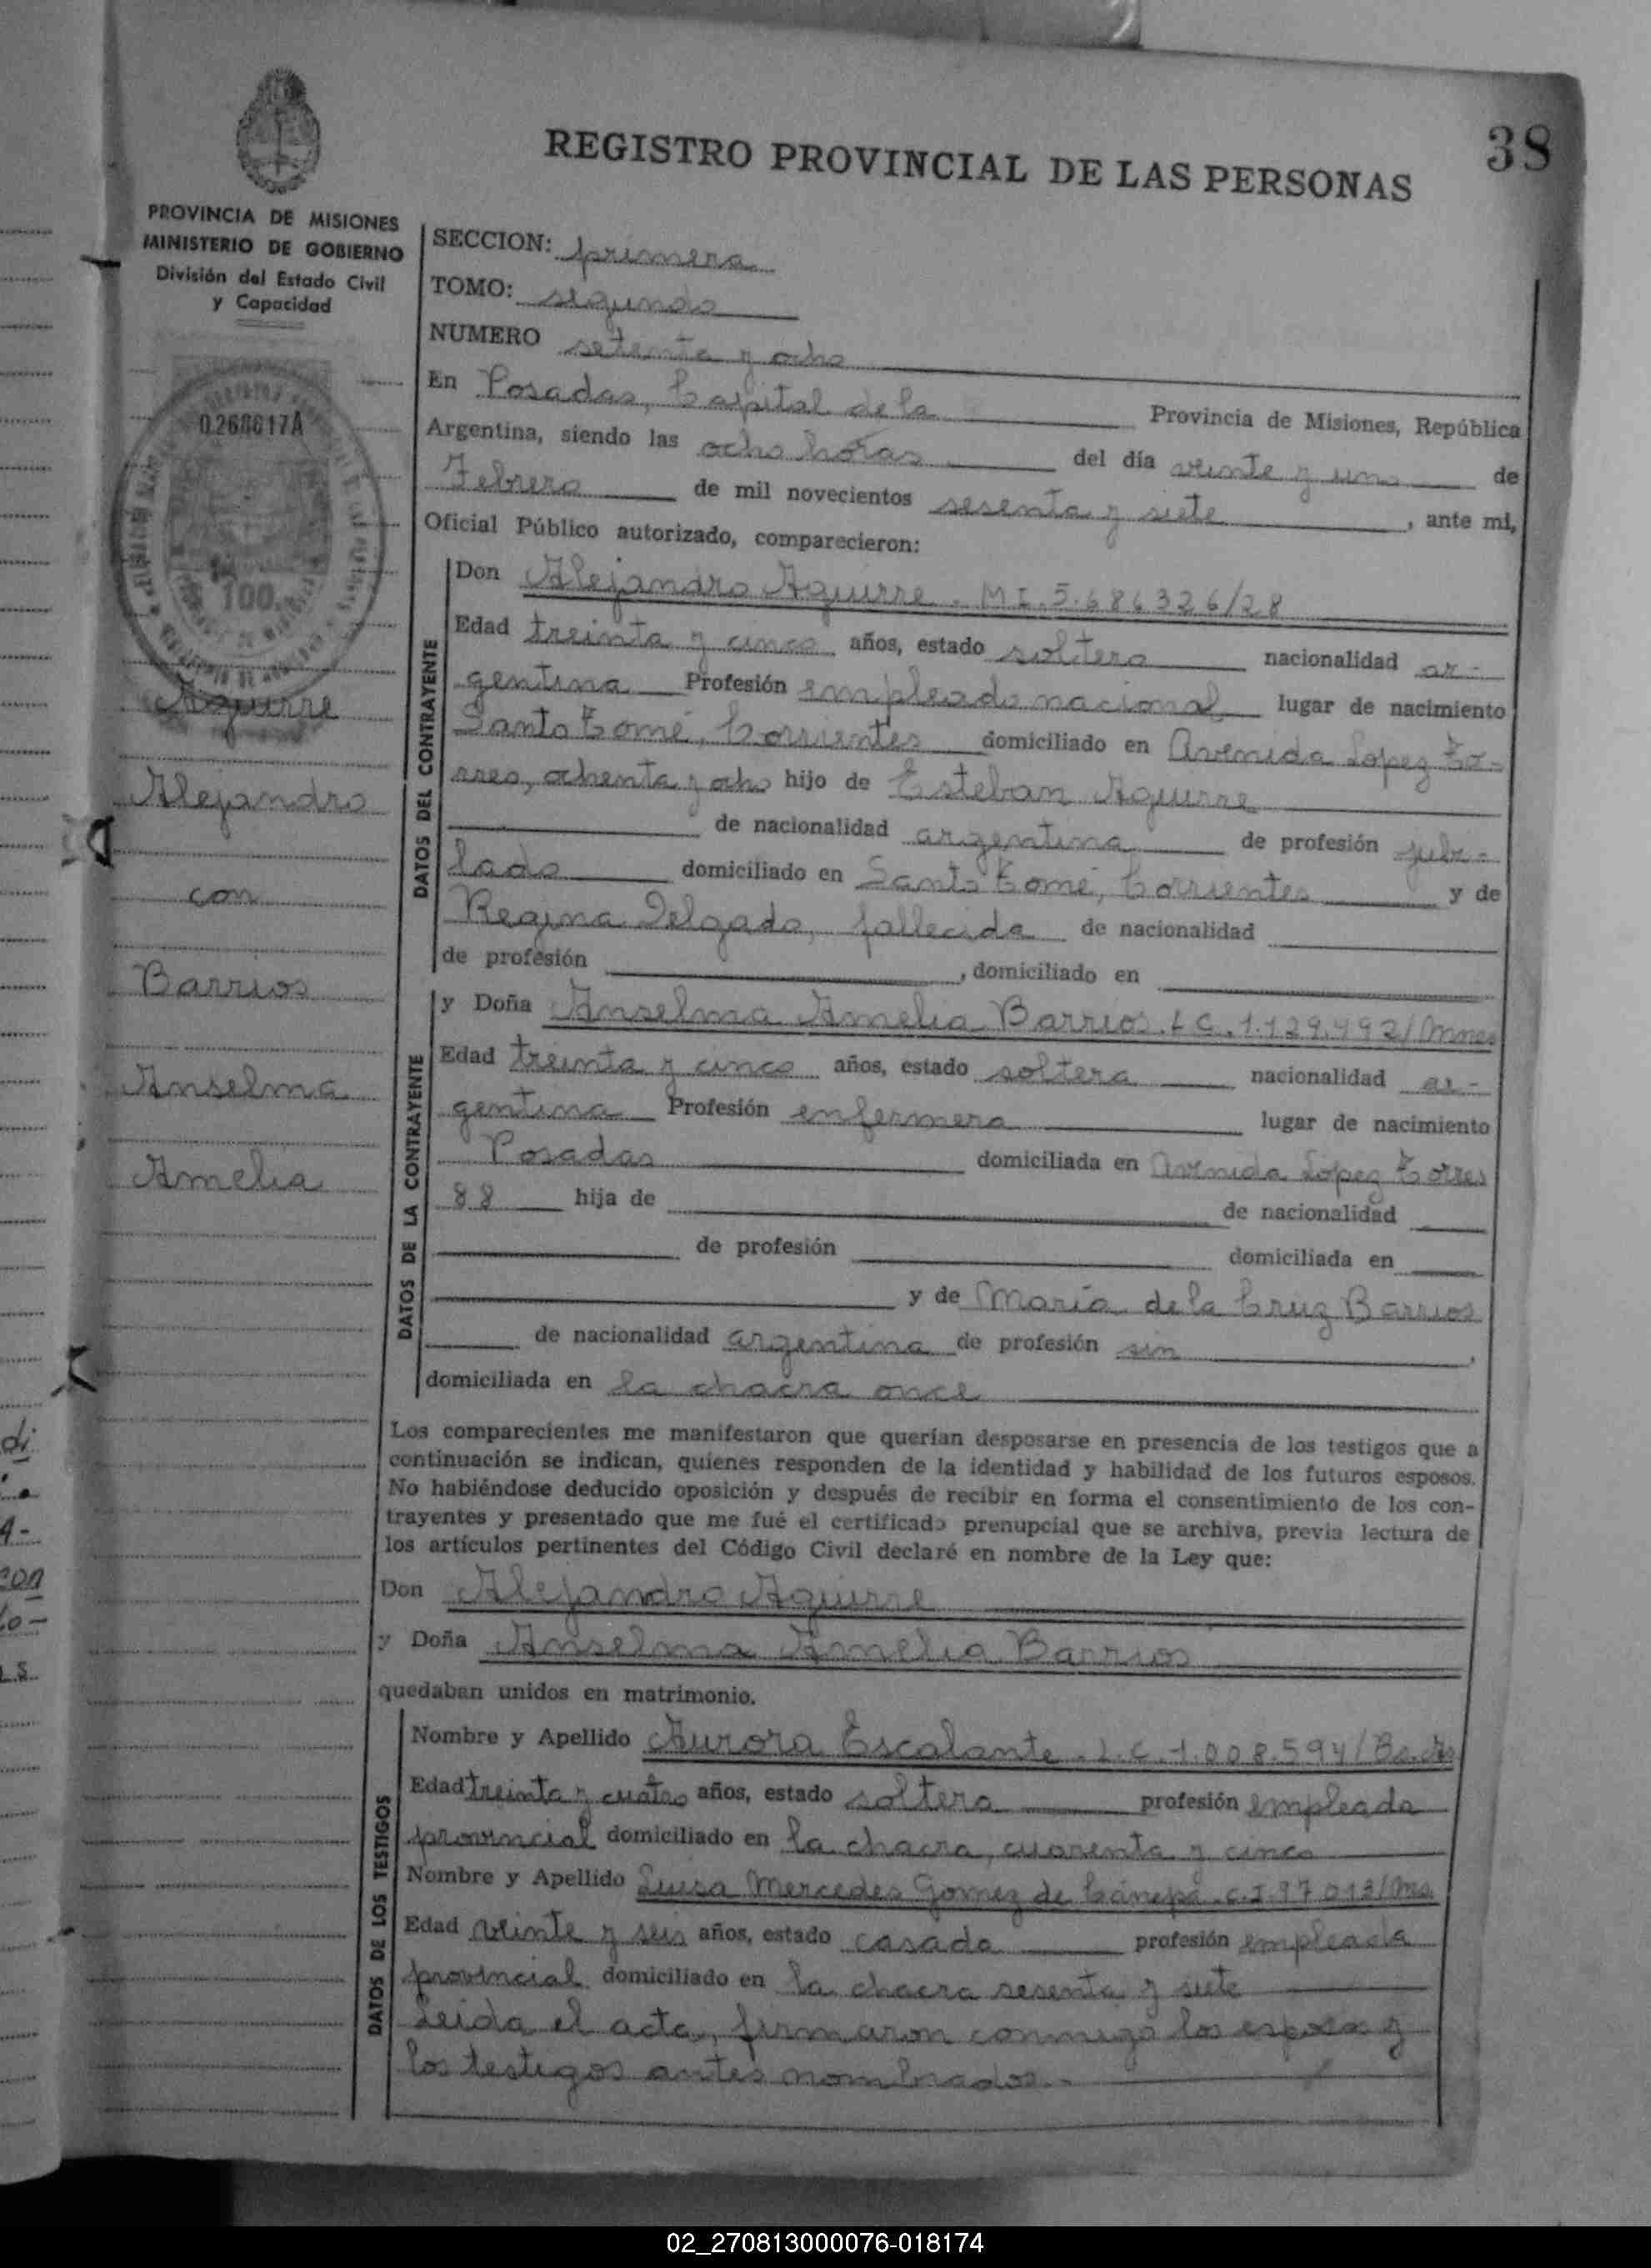 38
REGISTRO PROVINCIAL DE LAS PERSONAS
PROVINCIA DE MISIONES
MINISTERIO DE GOBIERNO
División del Estado Civil
y Capacidad
0.268617A
100
Aguirre
Alejandro
con
Barrios
Anselma
Amelia
SECCION: primera
TOMO: segundo
NUMERO setenta y ocho
En Posadas, Capital de la Provincia de Misiones, República
Argentina, siendo las ocho horas del día veinte y uno de
Febrero de mil novecientos sesenta y siete, ante mi,
Oficial Público autorizado, comparecieron:
DATOS DEL CONTRAYENTE
Don Alejandro Aguirre. M I. 5.686326/28
Edad treinta y cinco años, estado soltero nacionalidad ar-
gentina Profesión empleado nacional lugar de nacimiento
Santo Tomé, Corrientes domiciliado en Avenida Lopez To-
rres, ochenta y ocho hijo de Esteban Aguirre
de nacionalidad argentina de profesión jubi-
lado domiciliado en Santo Tomé, Corrientes y de
Regina Delgado, fallecida de nacionalidad
de profesión , domiciliado en
DATOS DE LA CONTRAYENTE
y Doña Anselma Amelia Barrios. L C. 1.129.492/Mnes
Edad treinta y cinco años, estado soltera nacionalidad ar-
gentina Profesión enfermera lugar de nacimiento
Posadas domiciliada en Avenida Lopez Torres
88 hija de de nacionalidad
de profesión domiciliada en
y de María de la Cruz Barrios
de nacionalidad argentina de profesión sin ,
domiciliada en la chacra once
Los comparecientes me manifestaron que querían desposarse en presencia de los testigos que a
continuación se indican, quienes responden de la identidad y habilidad de los futuros esposos.
No habiéndose deducido oposición y después de recibir en forma el consentimiento de los con-
trayentes y presentado que me fué el certificado prenupcial que se archiva, previa lectura de
los artículos pertinentes del Código Civil declaré en nombre de la Ley que:
Don Alejandro Aguirre
y Doña Anselma Amelia Barrios
quedaban unidos en matrimonio.
DATOS DE LOS TESTIGOS
Nombre y Apellido Aurora Escalante. L.C. 1.008.594/Bs.As
Edad treinta y cuatro años, estado soltera profesión empleada
provincial domiciliado en la chacra, cuarenta y cinco
Nombre y Apellido Luisa Mercedes Gomez de Cánepa. C.I. 97 013/Ms.
Edad veinte y seis años, estado casada profesión empleada
provincial domiciliado en la chacra sesenta y siete
Leida el acta, firmaron conmigo los esposos y
los testigos antes nombrados.-
02_270813000076-018174